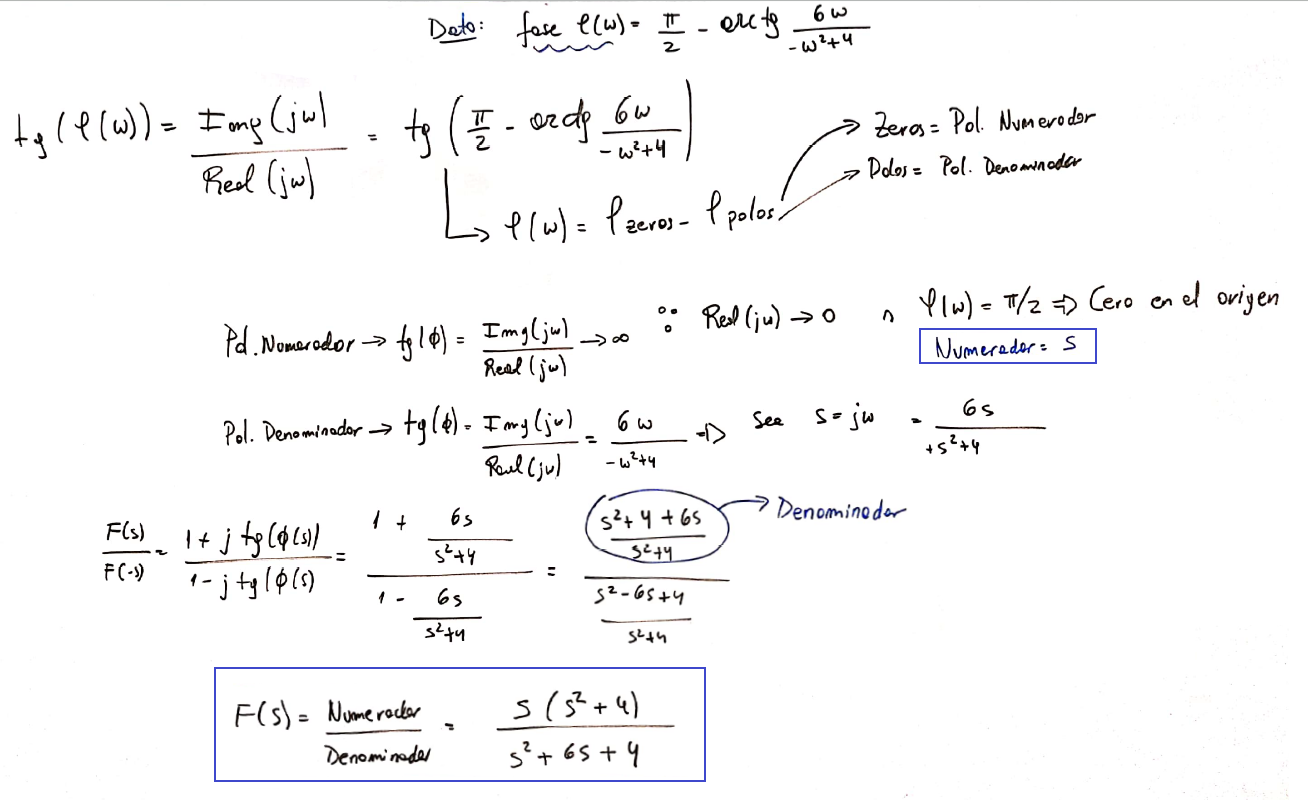 Dato: fase φ(w) = π/2 - arctg 6w/(-w²+4)
tg(φ(w)) = Img(jw)/Real(jw) = tg(π/2 - arctg 6w/(-w²+4))
Zeros = Pol. Numerador
Polos = Pol. Denominador
φ(w) = φzeros - φpolos
Pol. Numerador → tg(φ) = Img(jw)/Real(jw) → ∞ ∵ Real(jw) → 0 ∧ φ(w) = π/2 ⇒ Cero en el origen
Numerador = S
Pol. Denominador → tg(φ) = Img(jw)/Real(jw) = 6w/(-w²+4) ⇒ See S = jw = 6s/(+s²+4)
F(s)/F(-s) = (1 + j tg(φ(s))/(1 - j tg(φ(s)) = (1 + 6s/(s²+4))/(1 - 6s/(s²+4)) = ((s²+4+6s)/(s²+4))/((s²-6s+4)/(s²+4))
Denominador
F(s) = Numerador/Denominador = s(s²+4)/(s²+6s+4)